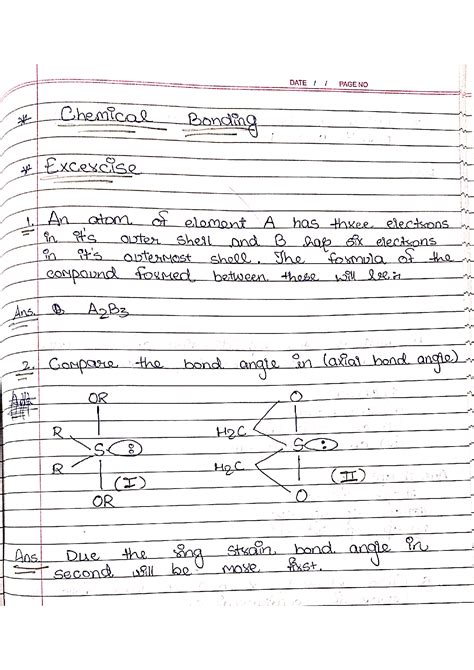 DATE / / PAGE NO
* Chemical Bonding
* Excexcise
1. An atom of element A has three electrons
in it's outer shell and B hap six electrons
in it's outermost shell. The formula of the
compound formed between these will be:
Ans. A2B3
2. Compare the bond angle in (axial bond angle)
OR O
R H2C
S S
R H2C
(I) (II)
OR O
Ans Due the ring strain bond angle in
second will be more first.